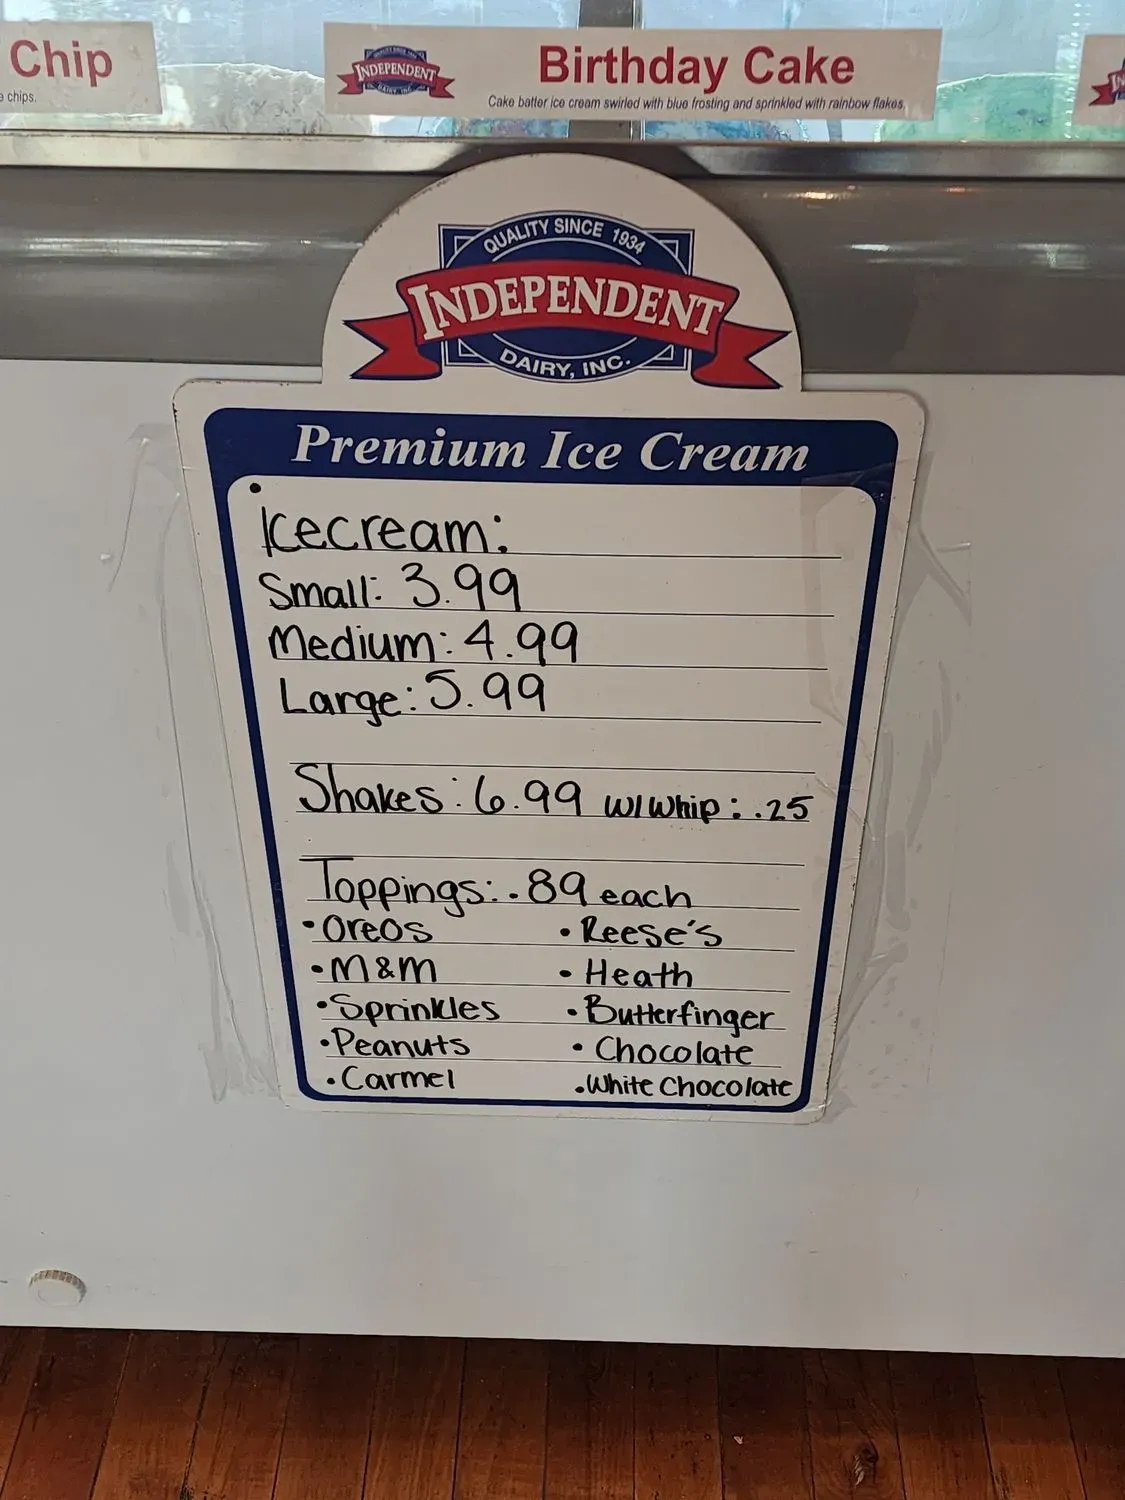 Chip
chips.
INDEPENDENT
Birthday Cake
Cake batter ice cream swirled with blue frosting and sprinkled with rainbow flakes.
QUALITY SINCE 1934
INDEPENDENT
DAIRY, INC.
Premium Ice Cream
Icecream:
Small: 3.99
Medium: 4.99
Large: 5.99
Shakes: 6.99 w/whip: .25
Toppings: .89 each
• Oreos • Reese's
• M&M • Heath
• Sprinkles • Butterfinger
• Peanuts • Chocolate
• Carmel • White Chocolate